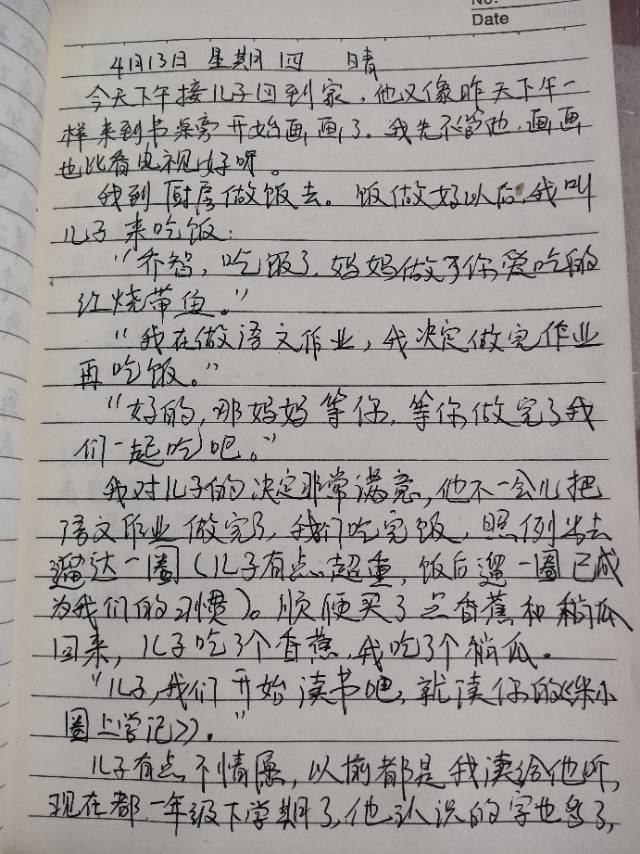 No.
Date
4月13日 星期四 晴
今天下午接儿子回到家，他又像昨天下午一
样来到书桌旁开始画画了。我先不管他，画画
也比看电视好呀。
我到厨房做饭去。饭做好以后，我叫
儿子来吃饭：
“乔智，吃饭了，妈妈做了你爱吃的
红烧带鱼。”
“我在做语文作业，我决定做完作业
再吃饭。”
“好的，那妈妈等你，等你做完了我
们一起吃吧。”
我对儿子的决定非常满意，他不一会儿把
语文作业做完了，我们吃完饭，照例出去
遛达一圈（儿子有点超重，饭后遛一圈已成
为我们的习惯）。顺便买了点香蕉和稍瓜
回来，儿子吃了个香蕉，我吃了个稍瓜。
“儿子，我们开始读书吧，就读你的《米小
圈上学记》。”
儿子有点不情愿，以前都是我读给他听，
现在都一年级下学期了，他认识的字也多了，